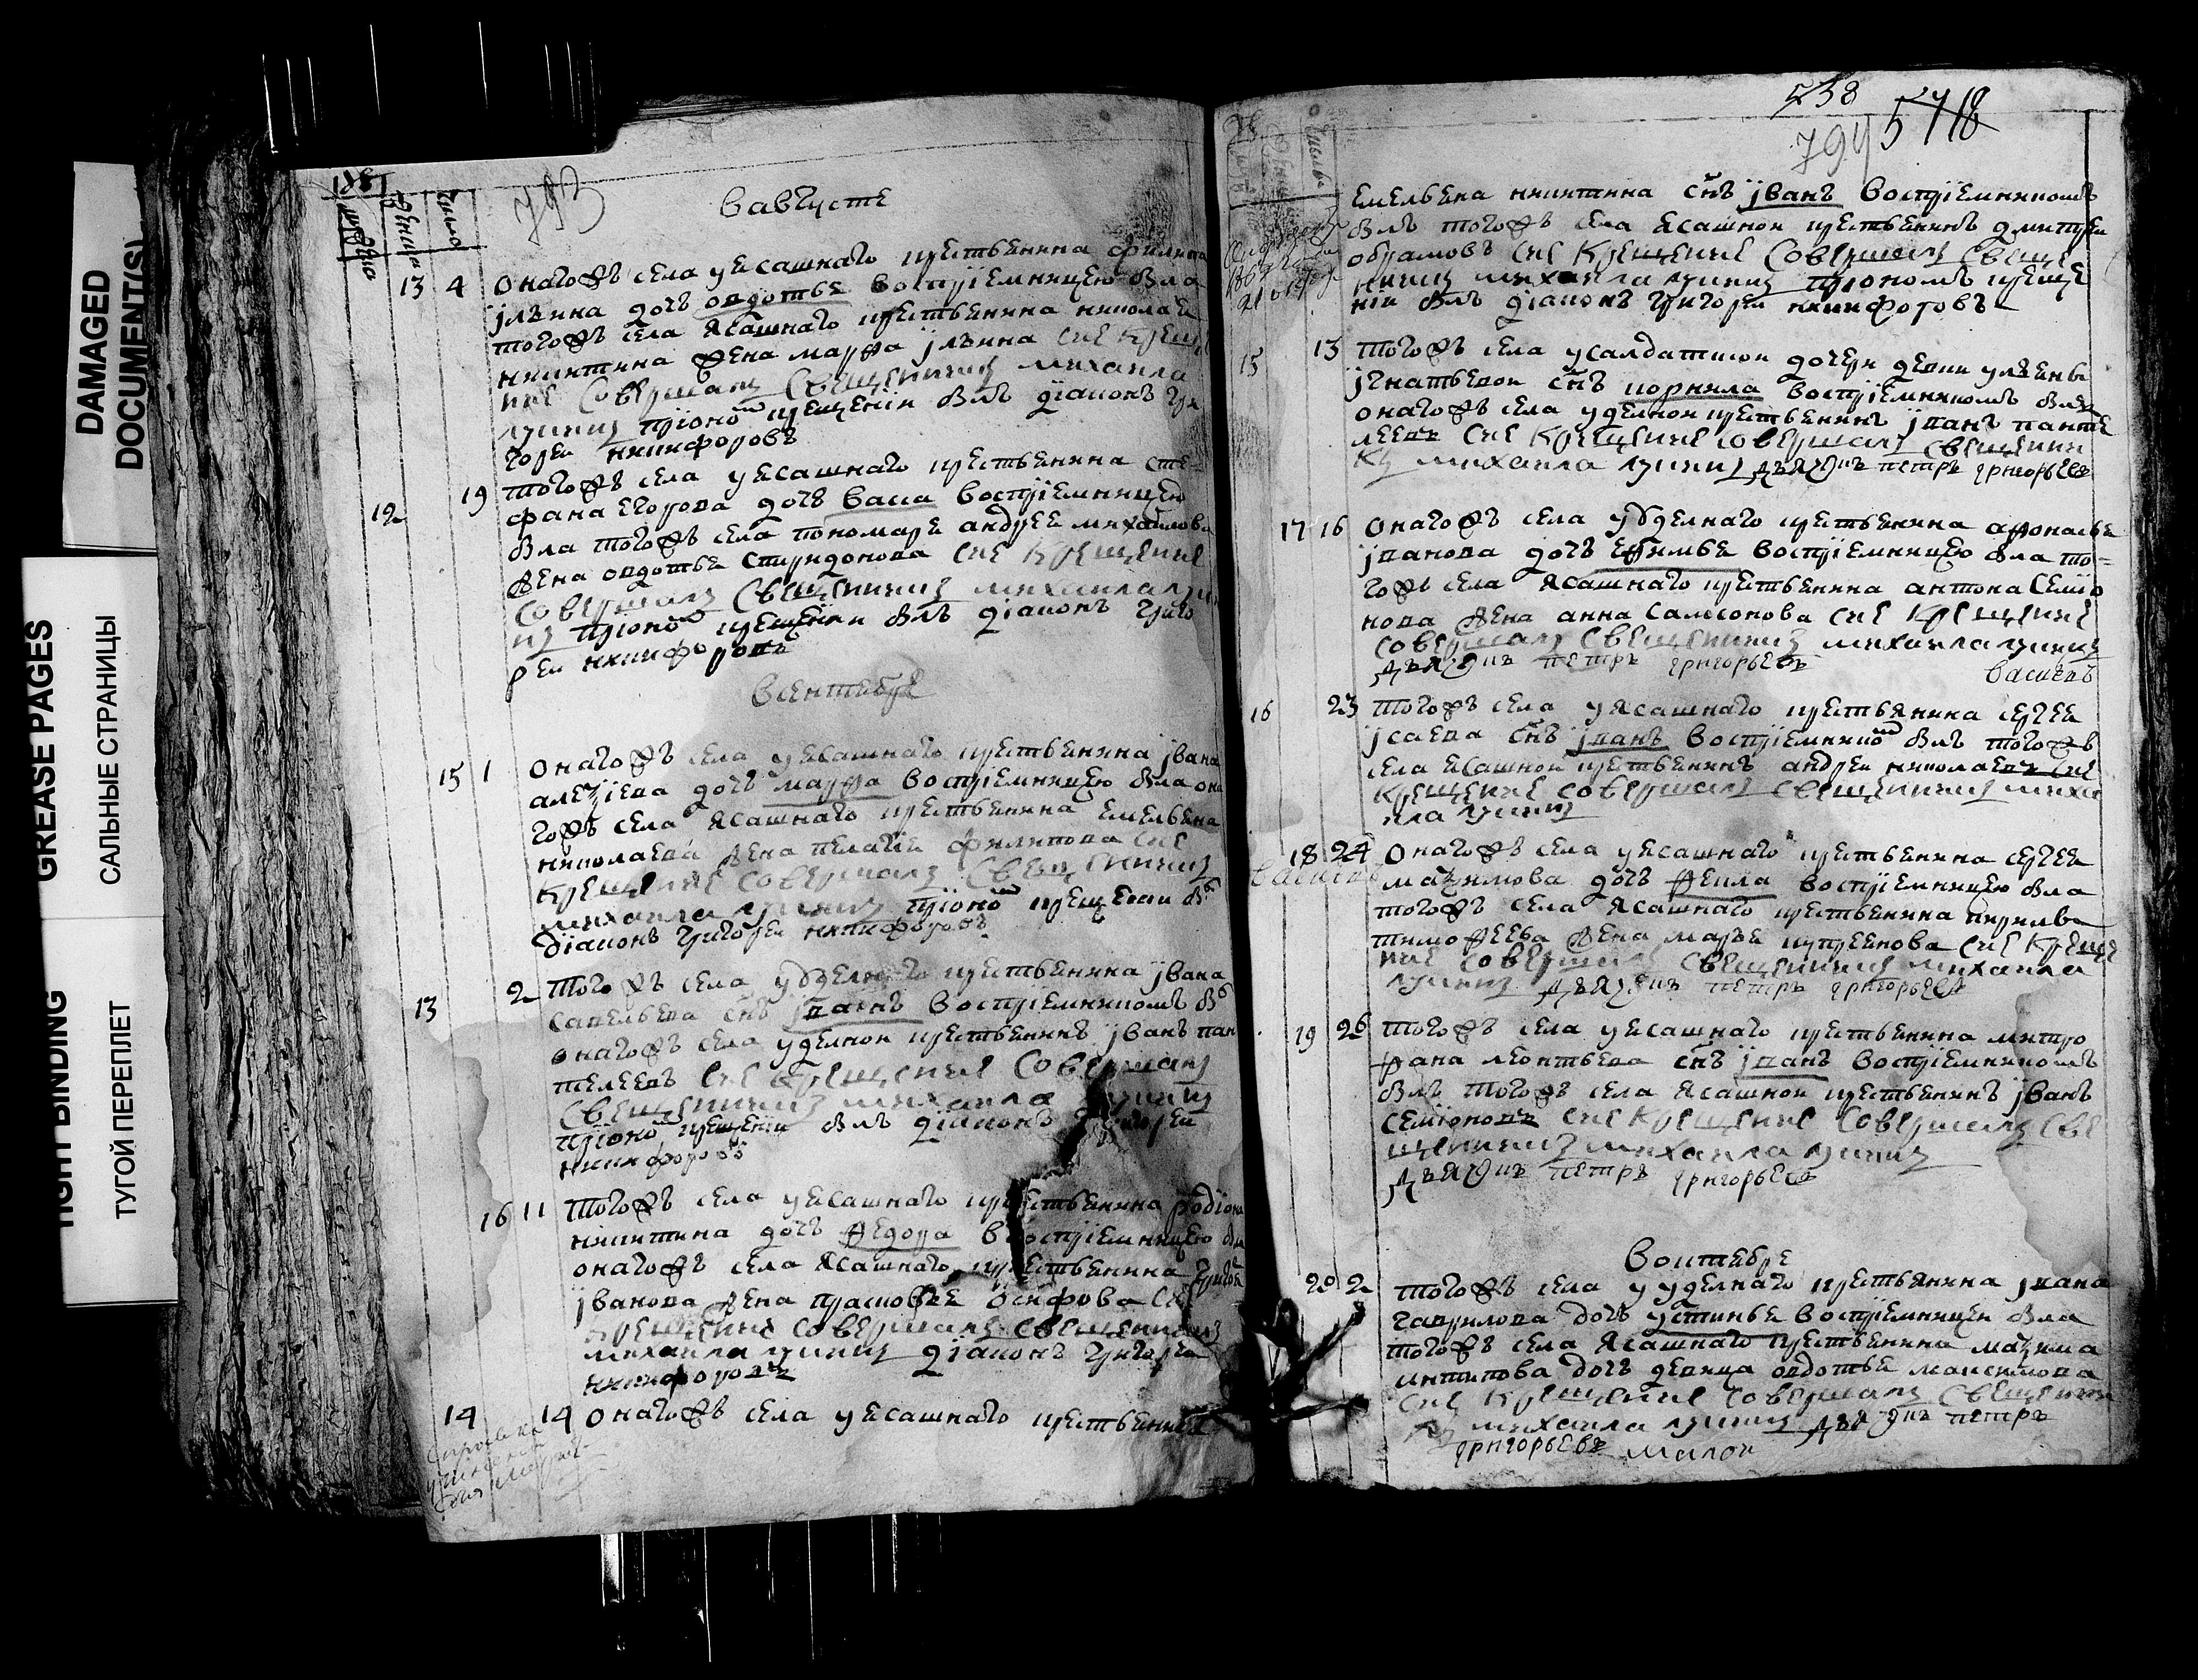 DAMAGED
DOCUMENT(S)
GREASE PAGES
САЛЬНЫЕ СТРАНИЦЫ
TIGHT BINDING
ТУГОЙ ПЕРЕПЛЕТ
793
Вавгусте
13 4 Онагожъ села уясашнаго крестьянина филипа
ильина дочь овдотья восприемницею была
тогожъ села ясашнаго крестьянина николая
никитина жена марфа ильина сие креще
ние совершалъ священникъ михаила
лукинъ приномъ крещении былъ диаконъ гри
горей никифоровъ
12 19 тогожъ села уясашнаго крестьянина сте-
фана егорова дочь васса восприемницею
была тогожъ села пономаря андрея михайлова
жена овдотья спиридонова сие крещение
совершалъ священникъ михаила луки
нъ приномъ крещении былъ диаконъ григо
рей никифоровъ
Всентябре
15 1 Онагожъ села уясашнаго крестьянина ивана
алексиева дочь марфа восприемницею была она
гожъ села ясашнаго крестьянина емельяна
николаева жена пелагия филипова сие
крещение совершалъ священникъ
михаила лукинъ приномъ крещении бы
диаконъ григорей никифоровъ
13 2 Тогожъ села уделнаго крестьянина ивана
савельева снъ иванъ восприемникомъ бы
онагожъ села уделной крестьянинъ иванъ пан
телеевъ сие крещение совершалъ
священникъ михаила лукинъ
приномъ крещении былъ диаконъ григорей
никифоровъ
16 11 Тогожъ села уясашнаго крестьянина родиона
никитина дочь федора восприемницею была
онагожъ села ясашнаго крестьянина григоя
иванова жена прасковья осифова сие
крещение совершалъ священникъ
михаила лукинъ диаконъ григорей
никифоровъ
14 14 Онагожъ села уясашнаго крестьянина
538
794 5718
емельяна никитина снъ иванъ восприемникомъ
былъ тогожъ села ясашной крестьянинъ дмитрей
обрамовъ сие крещение совершалъ свяще
нникъ михаила лукинъ приномъ креще
нии былъ диаконъ григорей никифоровъ
15 13 Тогожъ села усалдатской дочери девки ульяны
игнатьевой снъ корнила восприемникомъ былъ
онагожъ села уделной крестьянинъ иванъ панте
леевъ сие крещение совершалъ священни
къ михаила лукинъ дьяконъ петръ григорьевъ
17 16 Онагожъ села уделнаго крестьянина афонасья
иванова дочь ефимья восприемницею была то-
гожъ села ясашнаго крестьянина антона семио
нова жена анна самсонова сие крещение
совершалъ священникъ михаила лукинъ
дьяконъ петръ григорьевъ
16 23 Тогожъ села уясашнаго крестьянина сергея
исаева снъ иванъ восприемникомъ былъ тогожъ
села ясашной крестьянинъ андрей николаевъ сие
крещение совершалъ священникъ миха
ила лукинъ
18 24 Онагожъ села уясашнаго крестьянина сергея
максимова дочь фекла восприемницею была
тогожъ села ясашнаго крестьянина кирилы
тимофеева жена марья купреянова сие креще
ние совершалъ священникъ михаила
лукинъ дьяконъ петръ григорьевъ
19 26 Тогожъ села уясашнаго крестьянина митро
фана леонтьева снъ иванъ восприемникомъ
былъ тогожъ села ясашной крестьянинъ иванъ
семионовъ сие крещение совершалъ свя
щенникъ михаила лукинъ
дьяконъ петръ григорьевъ
Воктябре
20 2 Тогожъ села у уделнаго крестьянина ивана
гаврилова дочь устинья восприемницею была
тогожъ села ясашнаго крестьянина максима
антипова дочь девица овдотья максимова
сие крещение совершалъ священни
къ михаила лукинъ дьяконъ петръ
григорьевъ